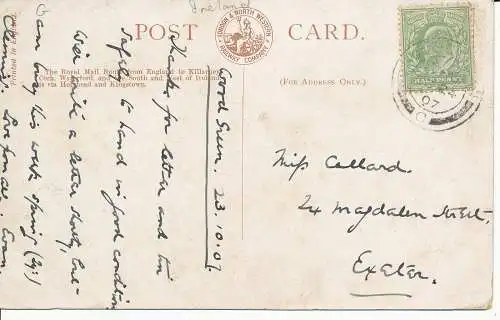 Ireland
POST CARD.
LONDON & NORTH WESTERN RAILWAY COMPANY
The Royal Mail Route from England to Killarney,
Cork, Waterford, and the South and East of Ireland
is via Holyhead and Kingstown.
Printed in
(FOR ADDRESS ONLY.)
HALFPENNY
07
Good Green. 23.10.07
Thanks for letter and tin
safely to hand in good condition
Will write a letter shortly, but
am busy this week
Love from all. Evan.
Miss Collard.
24 Magdalen Street.
Exeter.